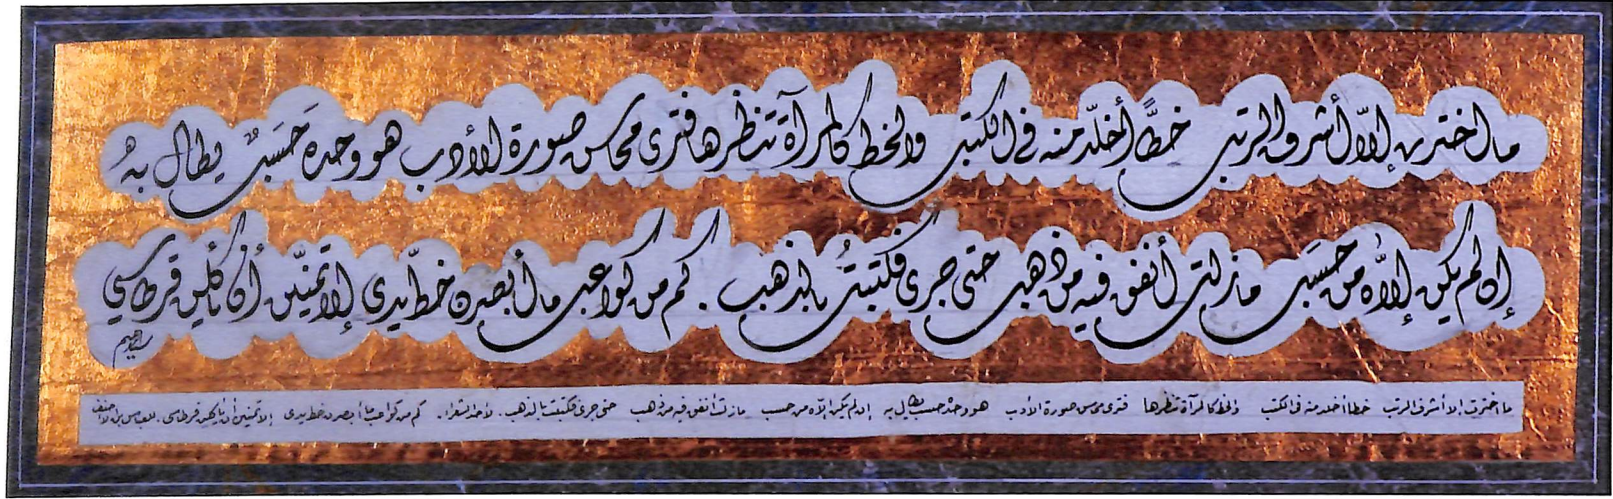 ما اخترت إلاّ أشرف الرتب خطًّا أخلّد منه في الكتب والخط كالمرآة تنظرها فترى محاسن صورة الأدب هو وحده حَسَبٌ يطال به
إن لم يكن إلاّه من حسَب مازلت أنفق فيه من ذهب حتى جرى فكتبتُ بالذهب . كم من كواعب ما أبصرن خطّ يدي إلا تمنيّن أن يأكلن قرطاسي
ما اخترت إلا أشرف الرتب خطا أخلد منه في الكتب والخط كالمرآة تنظرها فترى محاسن صورة الأدب هو وحده حسب يطال به إن لم يكن إلاه من حسب مازلت أنفق فيه من ذهب حتى جرى فكتبت بالذهب . لأحد الشعراء . كم من كواعب ما أبصرن خط يدي إلا تمنين أن يأكلن قرطاسي . للعباس بن الأحنف